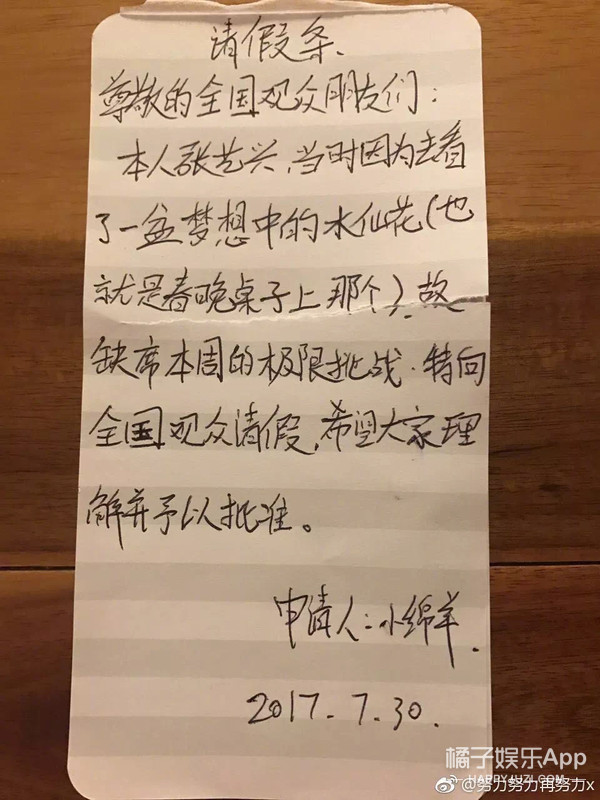 请假条.
尊敬的全国观众朋友们:
本人张艺兴,当时因为去看
了一盆梦想中的水仙花(也
就是春晚桌子上那个).故
缺席本周的极限挑战.特向
全国观众请假,希望大家理
解并予以批准。
申请人:小绵羊.
2017.7.30.
橘子娱乐App
HAPPYJUZI.COM
@努力努力再努力x